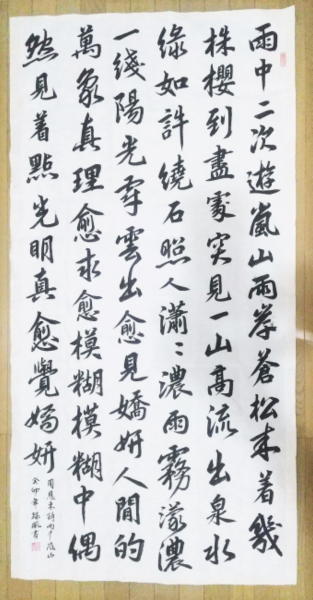 雨中二次遊嵐山兩岸蒼松夾着幾
株櫻到盡處突見一山高流出泉水
綠如許繞石照人瀟〻濃雨霧濛濃
一綫陽光穿雲出愈見嬌妍人間的
萬象真理愈求愈模糊模糊中偶
然見着點光明真愈覺嬌妍
周恩來詩雨中嵐山
癸卯年 書